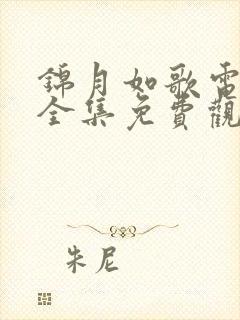 錦月如歌電
全集免費觀
朱尼